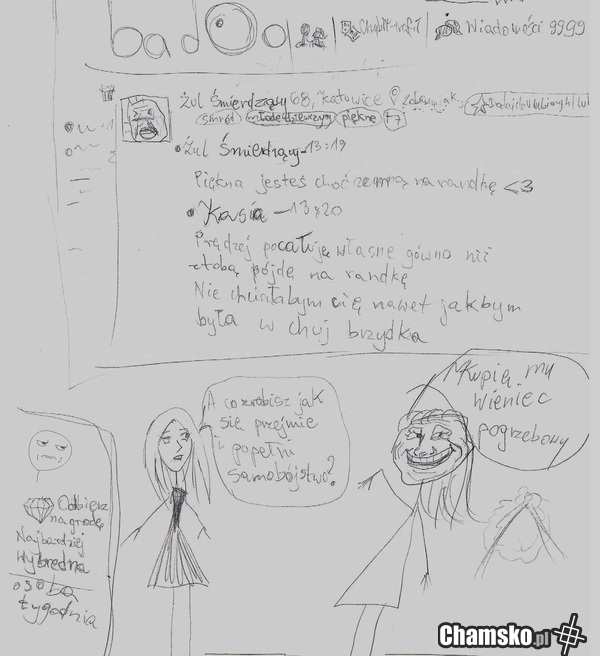 badoo Chybił-trafił Wiadomości 9999
Żul Śmierdzący 68, Katowice
smród młode dziewczyny piękne +7
Żul Śmierdzący - 13:19
Piękna jesteś choć ze mną na randkę <3
Kasia - 13:20
Prędzej pocałuję własne gówno niż
z tobą pójdę na randkę
Nie chciałabym cię nawet jakbym
była w chuj brzydka
A co zrobisz jak
się przejmie
i popełni
samobójstwo?
Kupię mu
wieniec
pogrzebowy
Odbierz
nagrodę
Najbardziej
wybredna
osoba
tygodnia
Chamsko.pl